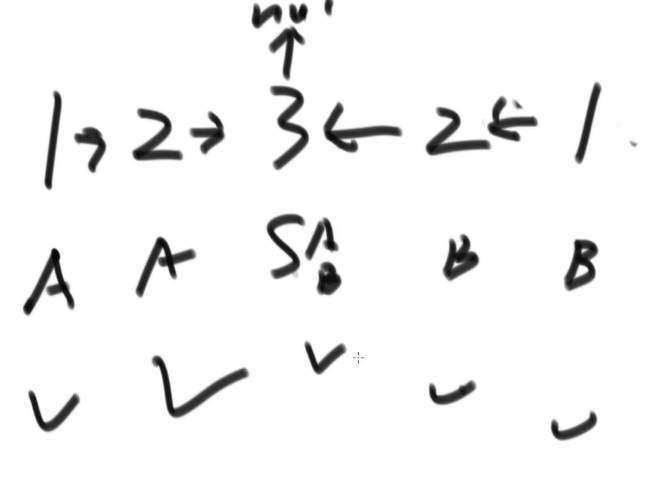 ↑
1 → 2 → 3 ← 2 ← 1
A A S A B B B
✓ ✓ ✓ ✓ ✓